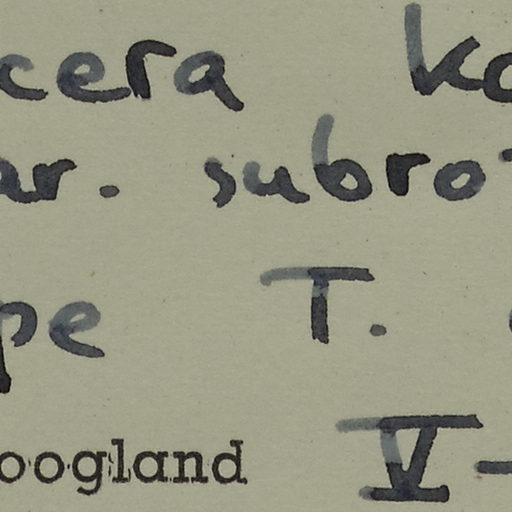 cera ko
ar. subro
pe T.
oogland V-